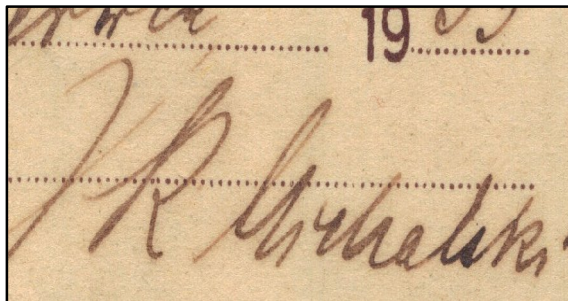 19
JR Michalski